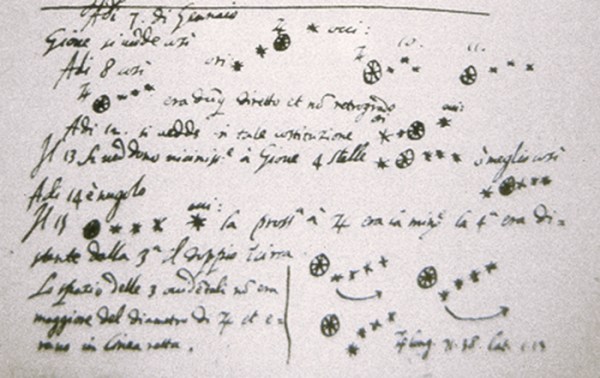 Adi 7. di Gennaio
Gioue si uedde così ori: occ:
Adi 8 così
era dūq̄ diretto et nō retrogrado
Adi 12. si uedde in tale costituzione ori: occ:
Il 13 si ueddono uiciniss.e à Gioue 4 stelle ò meglio così
Adi 14 è nugolo
Il 15 occ: la pross.a à ♃ era la min.e la 4.a era di=
stante dalla 3.a il doppio circa
Lo spazio delle 3 occidentali nō era
maggiore del diametro di ♃ et e=
rano in linea retta.
♃ long. 71.38 lat. 1.13